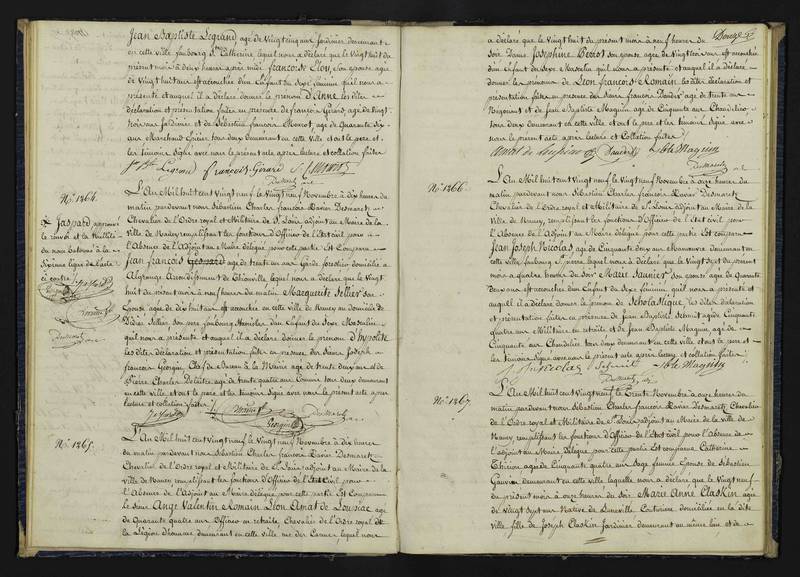 Jean Baptiste Legrand âgé de Vingt cinq ans Jardinier demeurant
en cette ville faubourg Ste Catherine, lequel nous a déclaré que le Vingt huit du
présent mois à deux heures après midi françoise Eloy, son épouse âgée
de Vingt huit ans est accouchée d'un Enfant du Sexe féminin qu'il nous a
présenté et auquel il a déclaré donner le prénom d'Anne les dites
déclaration et présentation faites en présence de françois Gérard, âgé de Vingt
trois ans Jardinier et de Sébastien françois Monrot, âgé de Quarante Six
ans Marchand Epicier tous deux demeurant en cette Ville et ont le père et
les témoins Signés avec nous le présent acte après lecture et collation faites
Jn Bte Legrand françois Gérard
Desmaretz
No. 1264.
L'An Mil huit cent Vingt neuf le Vingt neuf Novembre à dix heures du
matin pardevant nous Sébastien Charles françois Xavier Desmaretz
Chevalier de l'Ordre royal et Militaire de St Louis adjoint au Maire de la
Ville de Nancy remplissant les fonctions d'Officier de l'état civil pour
l'Absence de l'Adjoint au Maire délégué pour cette partie Est Comparu
Jean françois Gaspard âgé de trente un ans Garde forestier domicilié à
Algrange Arrondissement de Thionville, lequel nous a déclaré que le Vingt
huit du présent mois à neuf heures du matin Marguerite Sellier Son
Epouse âgée de dix huit ans est accouchée en cette Ville de Nancy au domicile de
Didier Sellier Son père faubourg Stanislas d'un Enfant du Sexe Masculin
qu'il nous a présenté et auquel il a déclaré donner le prénom d'hypolite
les dites déclaration et présentation faites en présence des Sieurs Joseph
françois Georgin Chef de Bureau à la Mairie âgé de trente deux ans et de
Pierre Charles Delaitre âgé de trente quatre ans Commis tous deux demeurant
en cette ville et ont le père et les témoins Signé avec nous le présent acte après
lecture et collation faites
Desmaretz
Georgin
Jaspard approuvé
le renvoi et la nullité
du nom batonné à la
Sixième ligne de l'acte
ci contre
No. 1265.
L'An Mil huit cent Vingt neuf le Vingt neuf Novembre à dix heures
du matin pardevant nous Sébastien Charles françois Xavier Desmaretz
Chevalier de l'Ordre royal et Militaire de St Louis adjoint au Maire de la
Ville de Nancy remplissant les fonctions d'Officier de l'état Civil pour
l'Absence de l'Adjoint au Maire délégué pour cette partie Est Comparu
le Sieur Ange Valentin Romain Léon Amat de Loupiac âgé
de Quarante quatre ans Officier en retraite, Chevalier de l'Ordre royal de
la Légion d'honneur demeurant en cette ville rue des Carmes, lequel nous
a déclaré que le Vingt huit du présent mois à neuf heures du
Soir Dame Joséphine Perrot Son épouse âgée de Vingt trois ans est accouchée
d'un Enfant du Sexe Masculin qu'il nous a présenté et auquel il a déclaré
donner les prénoms de Léon françois Romain les dites déclaration et
présentation faites en présence des Sieurs françois âgé de trente ans
Négociant et de Jean Baptiste Maguin âgé de Cinquante ans Chandelier
tous deux demeurant en cette ville et ont le père et les témoins Signé avec
nous le présent acte après lecture et Collation faites
Amat de Loupiac Jn Bte Maguin
Desmaretz
No. 1266.
L'An Mil huit cent Vingt neuf le Vingt neuf Novembre à onze heures du
matin pardevant nous Sébastien Charles françois Xavier Desmaretz
Chevalier de l'Ordre royal et Militaire de St Louis adjoint au Maire de la
Ville de Nancy, remplissant les fonctions d'Officier de l'état civil pour
l'Absence de l'Adjoint au Maire délégué pour cette partie Est comparu
Jean Joseph Nicolas âgé de Cinquante deux ans Manoeuvre demeurant en
cette ville faubourg St pierre lequel nous a déclaré que le Vingt Sept du présent
mois à quatre heures du Soir Marie Saunier Son épouse âgée de Quarante
deux ans est accouchée d'un Enfant du Sexe féminin qu'il nous a présenté et
auquel il a déclaré donner le prénom de Scholastique, les dites déclaration
et présentation faites en présence de Jean Baptiste Schmit âgé de Cinquante
quatre ans Militaire en retraite et de Jean Baptiste Maguin, âgé de
Cinquante ans Chandelier tous deux demeurant en cette ville et ont le père et
les témoins Signé avec nous le présent acte après lecture et collation faites
J J Nicolas Schmit Jn Bte Maguin
Desmaretz
No. 1267.
L'An Mil huit cent Vingt neuf le Trente Novembre à onze heures du
matin pardevant nous Sébastien Charles françois Xavier Desmaretz Chevalier
de l'Ordre royal et Militaire de St Louis adjoint au Maire de la ville de
Nancy remplissant les fonctions d'Officier de l'état civil pour l'absence de
l'adjoint au Maire délégué pour cette partie Est comparue Catherine
Thirion âgée de Cinquante quatre ans Sage femme Epouse de Sébastien
Gauvin demeurant en cette ville laquelle nous a déclaré que le Vingt neuf
du présent mois à onze heures du Soir Marie Anne Claskin âgée
de vingt Sept ans Native de Luneville Couturière domiciliée en la dite
ville, fille de Joseph Claskin Jardinier demeurant au même lieu et de